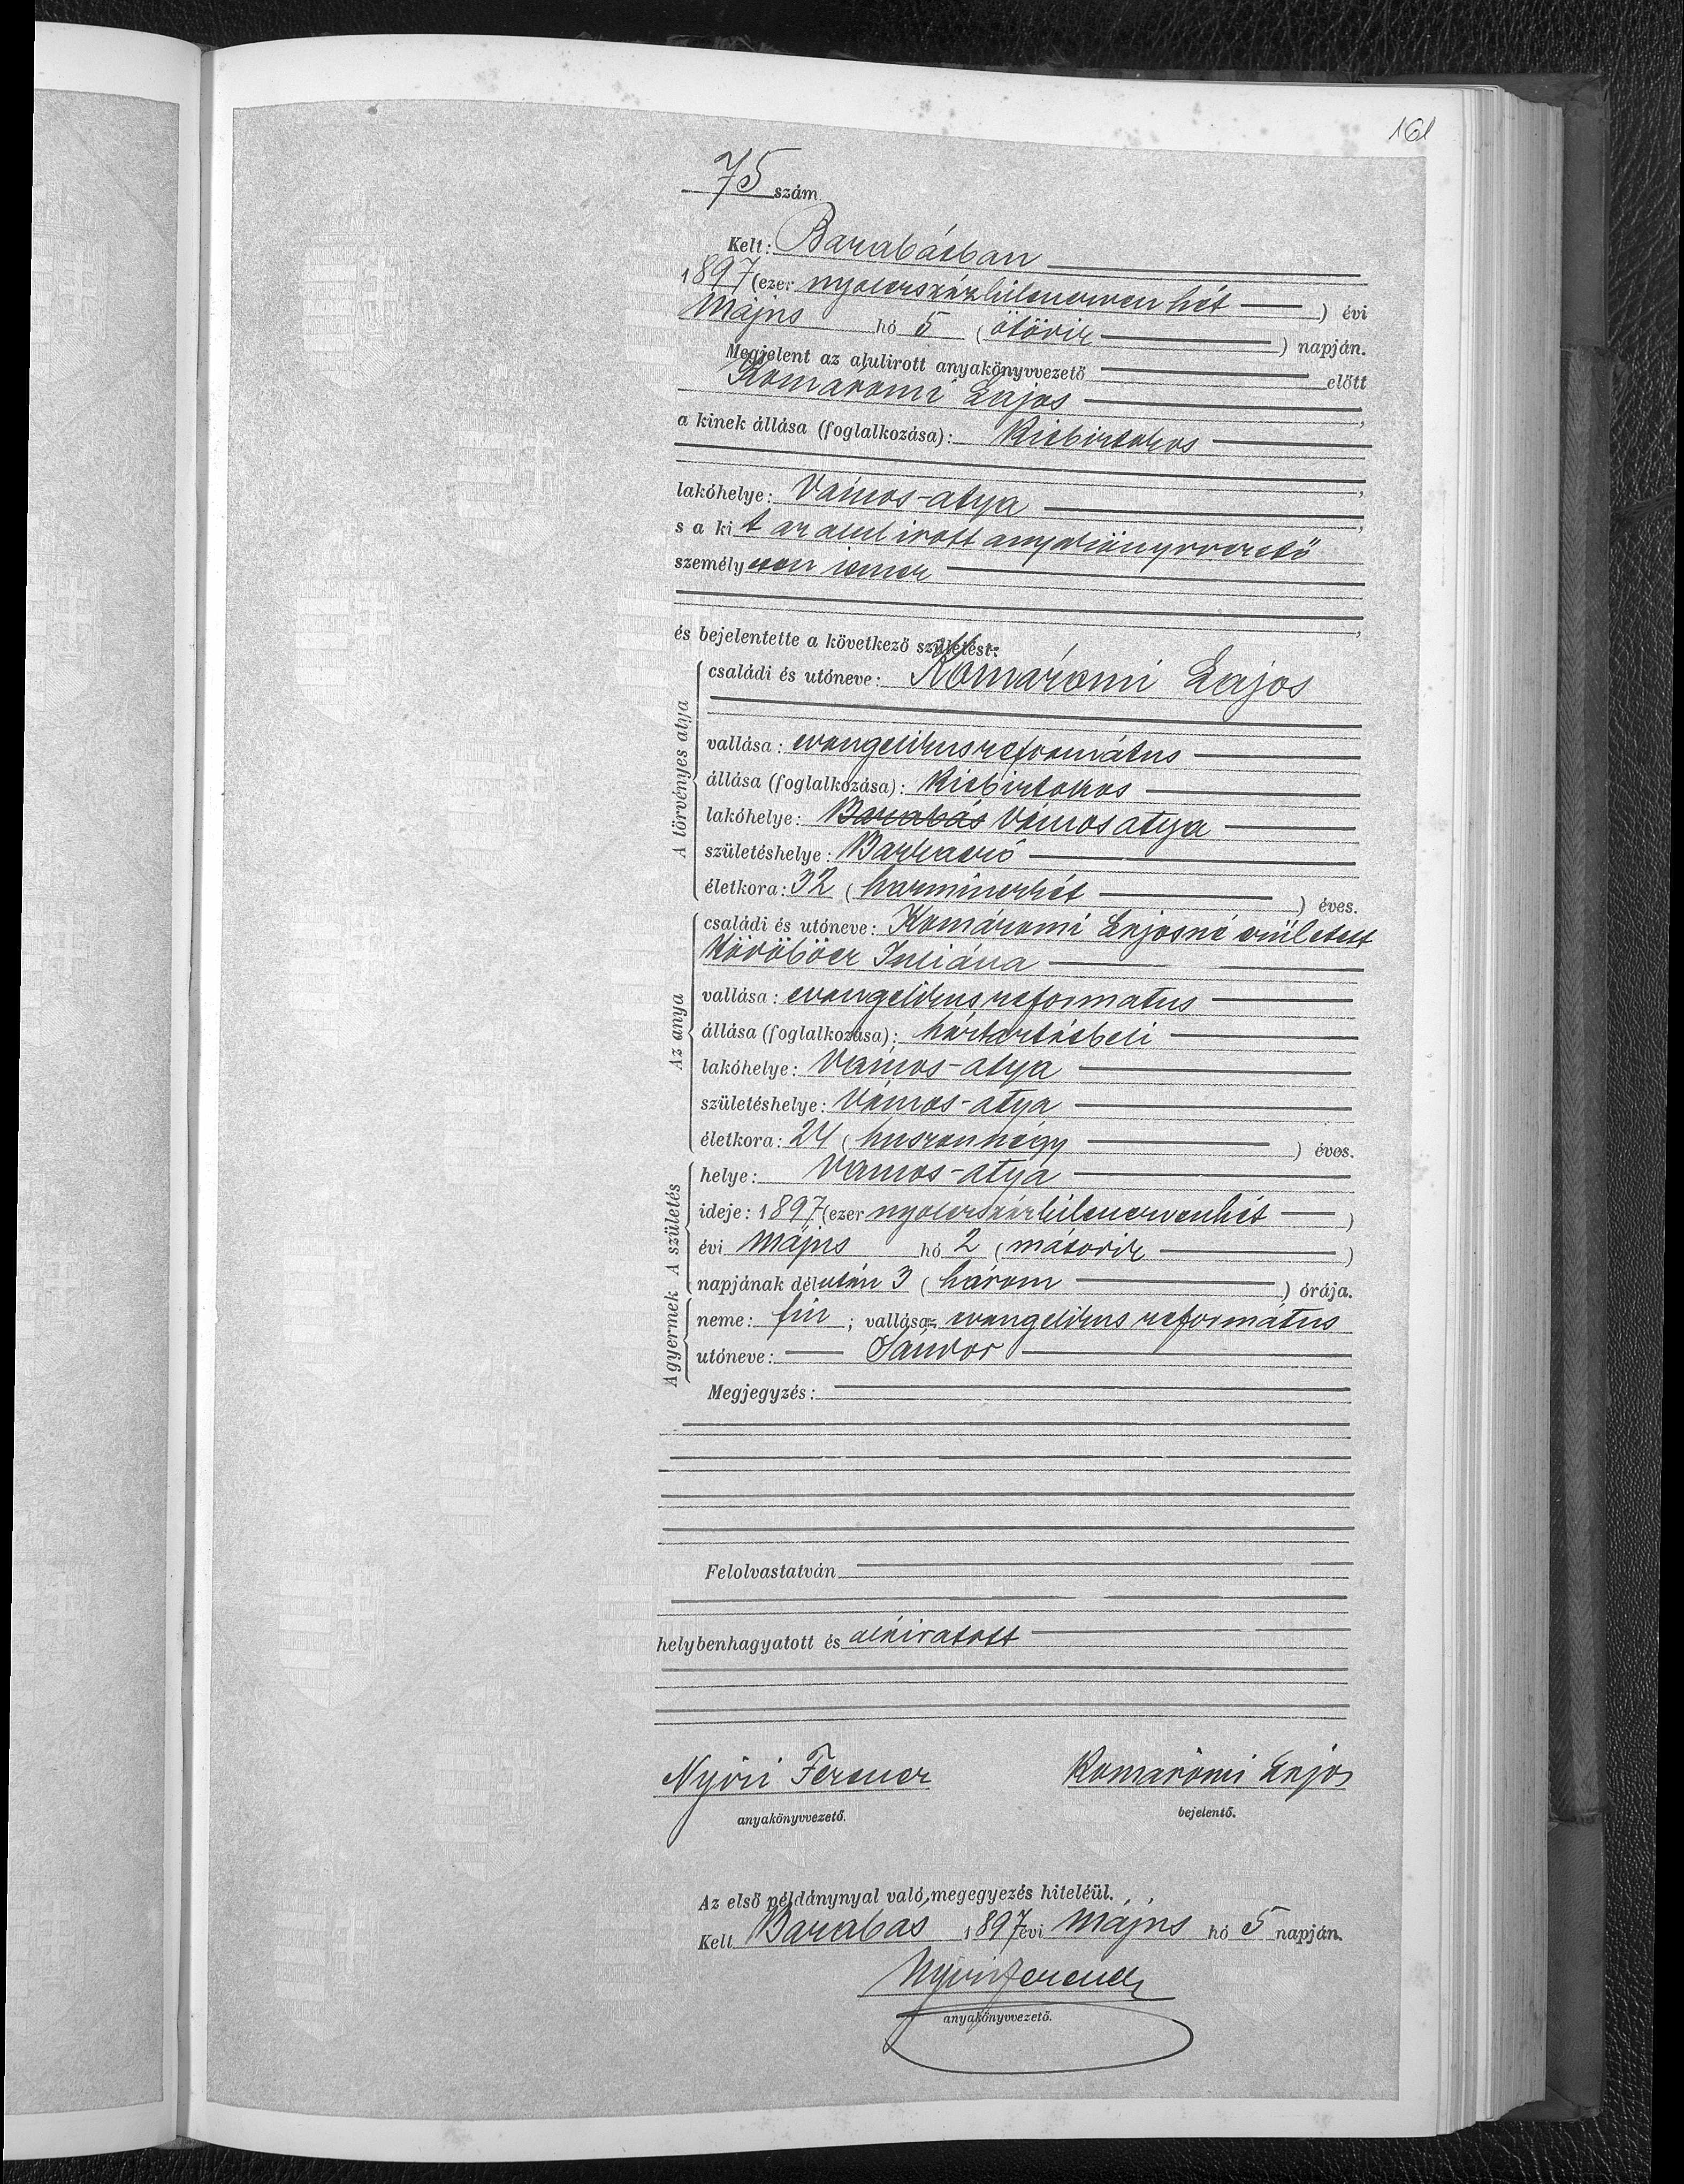 161
75 szám.
Kelt: Barabásban
1897 (ezer nyolcszázkilencvenhét ) évi
Május hó 5 ( ötödik ) napján.
Megjelent az alulirott anyakönyvvezető előtt
Komáromi Lajos ,
a kinek állása (foglalkozása): Kisbirtokos
,
lakóhelye: Vámos-atya ,
s a kit az alulirott anyakönyvvezető
személyesen ismer
,
és bejelentette a következő születést:
A törvényes atya
családi és utóneve: Komáromi Lajos
vallása: evangelikus református
állása (foglalkozása): Kisbirtokos
lakóhelye: Barabás Vámosatya
születéshelye:
életkora: 32 ( harminckét ) éves.
Az anya
családi és utóneve: Komáromi Lajosné született
Juliána
vallása: evangelikus reformatus
állása (foglalkozása): háztartásbeli
lakóhelye: Vámos-atya
születéshelye: Vámos-atya
életkora: 24 ( huszonnégy ) éves.
A születés
helye: Vamos-atya
ideje: 1897 (ezer nyolcszázkilencvenhét )
évi Május hó 2 ( második )
napjának délután 3 ( három ) órája.
A gyermek
neme: fiu ; vallása: evangelikus református
utóneve: Sándor
Megjegyzés:
Felolvastatván
helybenhagyatott és aláiratott
Nyiri Ferencz Komáromi Lajos
anyakönyvvezető. bejelentő.
Az első példánynyal való megegyezés hiteléül.
Kelt Barabás 1897 évi Május hó 5 napján.
Nyiri Ferencz
anyakönyvvezető.